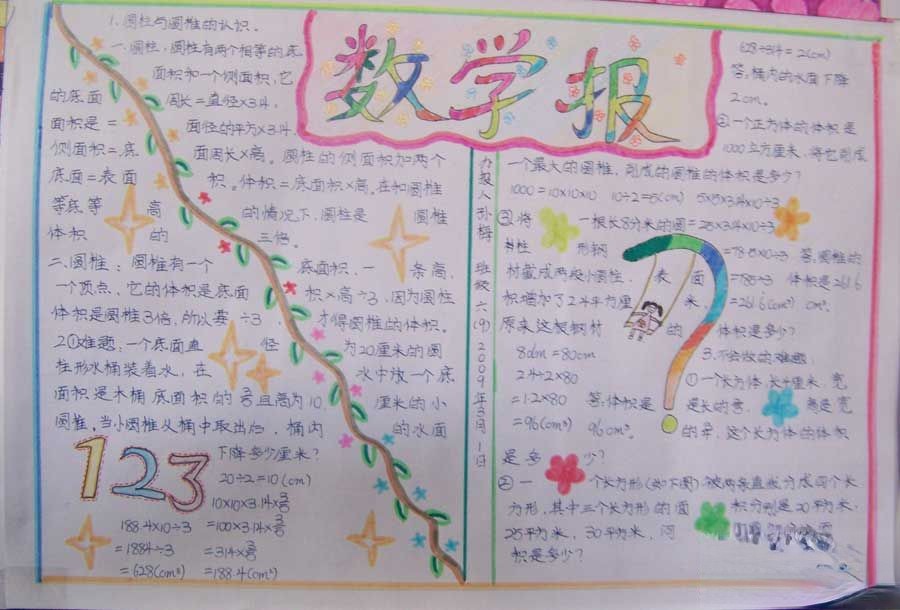 数学报
1.圆柱与圆椎的认识。
一.圆柱:圆柱有两个相等的底
面积和一个侧面积,它
的底面 周长=直径×3.14,
面积是= 面径的平方×3.14.
侧面积=底 面周长×高。圆柱的侧面积加两个
底面=表面 积。体积=底面积×高.在和圆椎
等底等 高 的情况下,圆柱是 圆椎
体积 的 三倍。
二.圆椎:圆椎有一个 底面积,一 条高,
一个顶点,它的体积是底面 积×高÷3,因为圆柱
体积是圆椎3倍,所以要÷3, 才得圆椎的体积。
2.①难题:一个底面直 径 为20厘米的圆
柱形水桶装着水,在 水中放一个底
面积是木桶底面积的 且高为10 厘米的小
圆椎,当小圆椎从桶中取出后,桶内 的水面
下降多少厘米?
123
20÷2=10(cm)
10×10×3.14×
188.4×10÷3 =100×3.14×
=1884÷3 =314×
=628(cm³) =188.4(cm²)
办报人孙梅 班级六(9)2009年3月1日
628÷314=2(cm)
答:桶内的水面下降
2cm。
②一个正方体的体积是
1000立方厘米,将它削成
一个最大的圆椎,削成的圆椎的体积是多少?
1000=10×10×10 10÷2=5(cm) 5×5×3.14×10÷3
③.将 一根长8分米的圆 =25×3.14×10÷3
柱 形钢 =78.5×10÷3 答:圆椎的
材截成两段小圆柱, 表 面 =785÷3 体积是261.6
积增加了2.4平方厘 米 =261.6(cm³) cm³。
原来这根钢材 的 体积是多少?
8dm=80cm
2.4÷2×80
=1.2×80 答:体积是
=96(cm³) 96cm³。
3.不会做的难题:
①一个长方体,长4厘米,宽
是长的 高是宽
的 这个长方体的体积
是多 少?
②一 个长方形(如下图),被两条直线分成四个长
方形,其中三个长方形的面 积分别是20平方米,
25平方米,30平方米,问
积是多少?